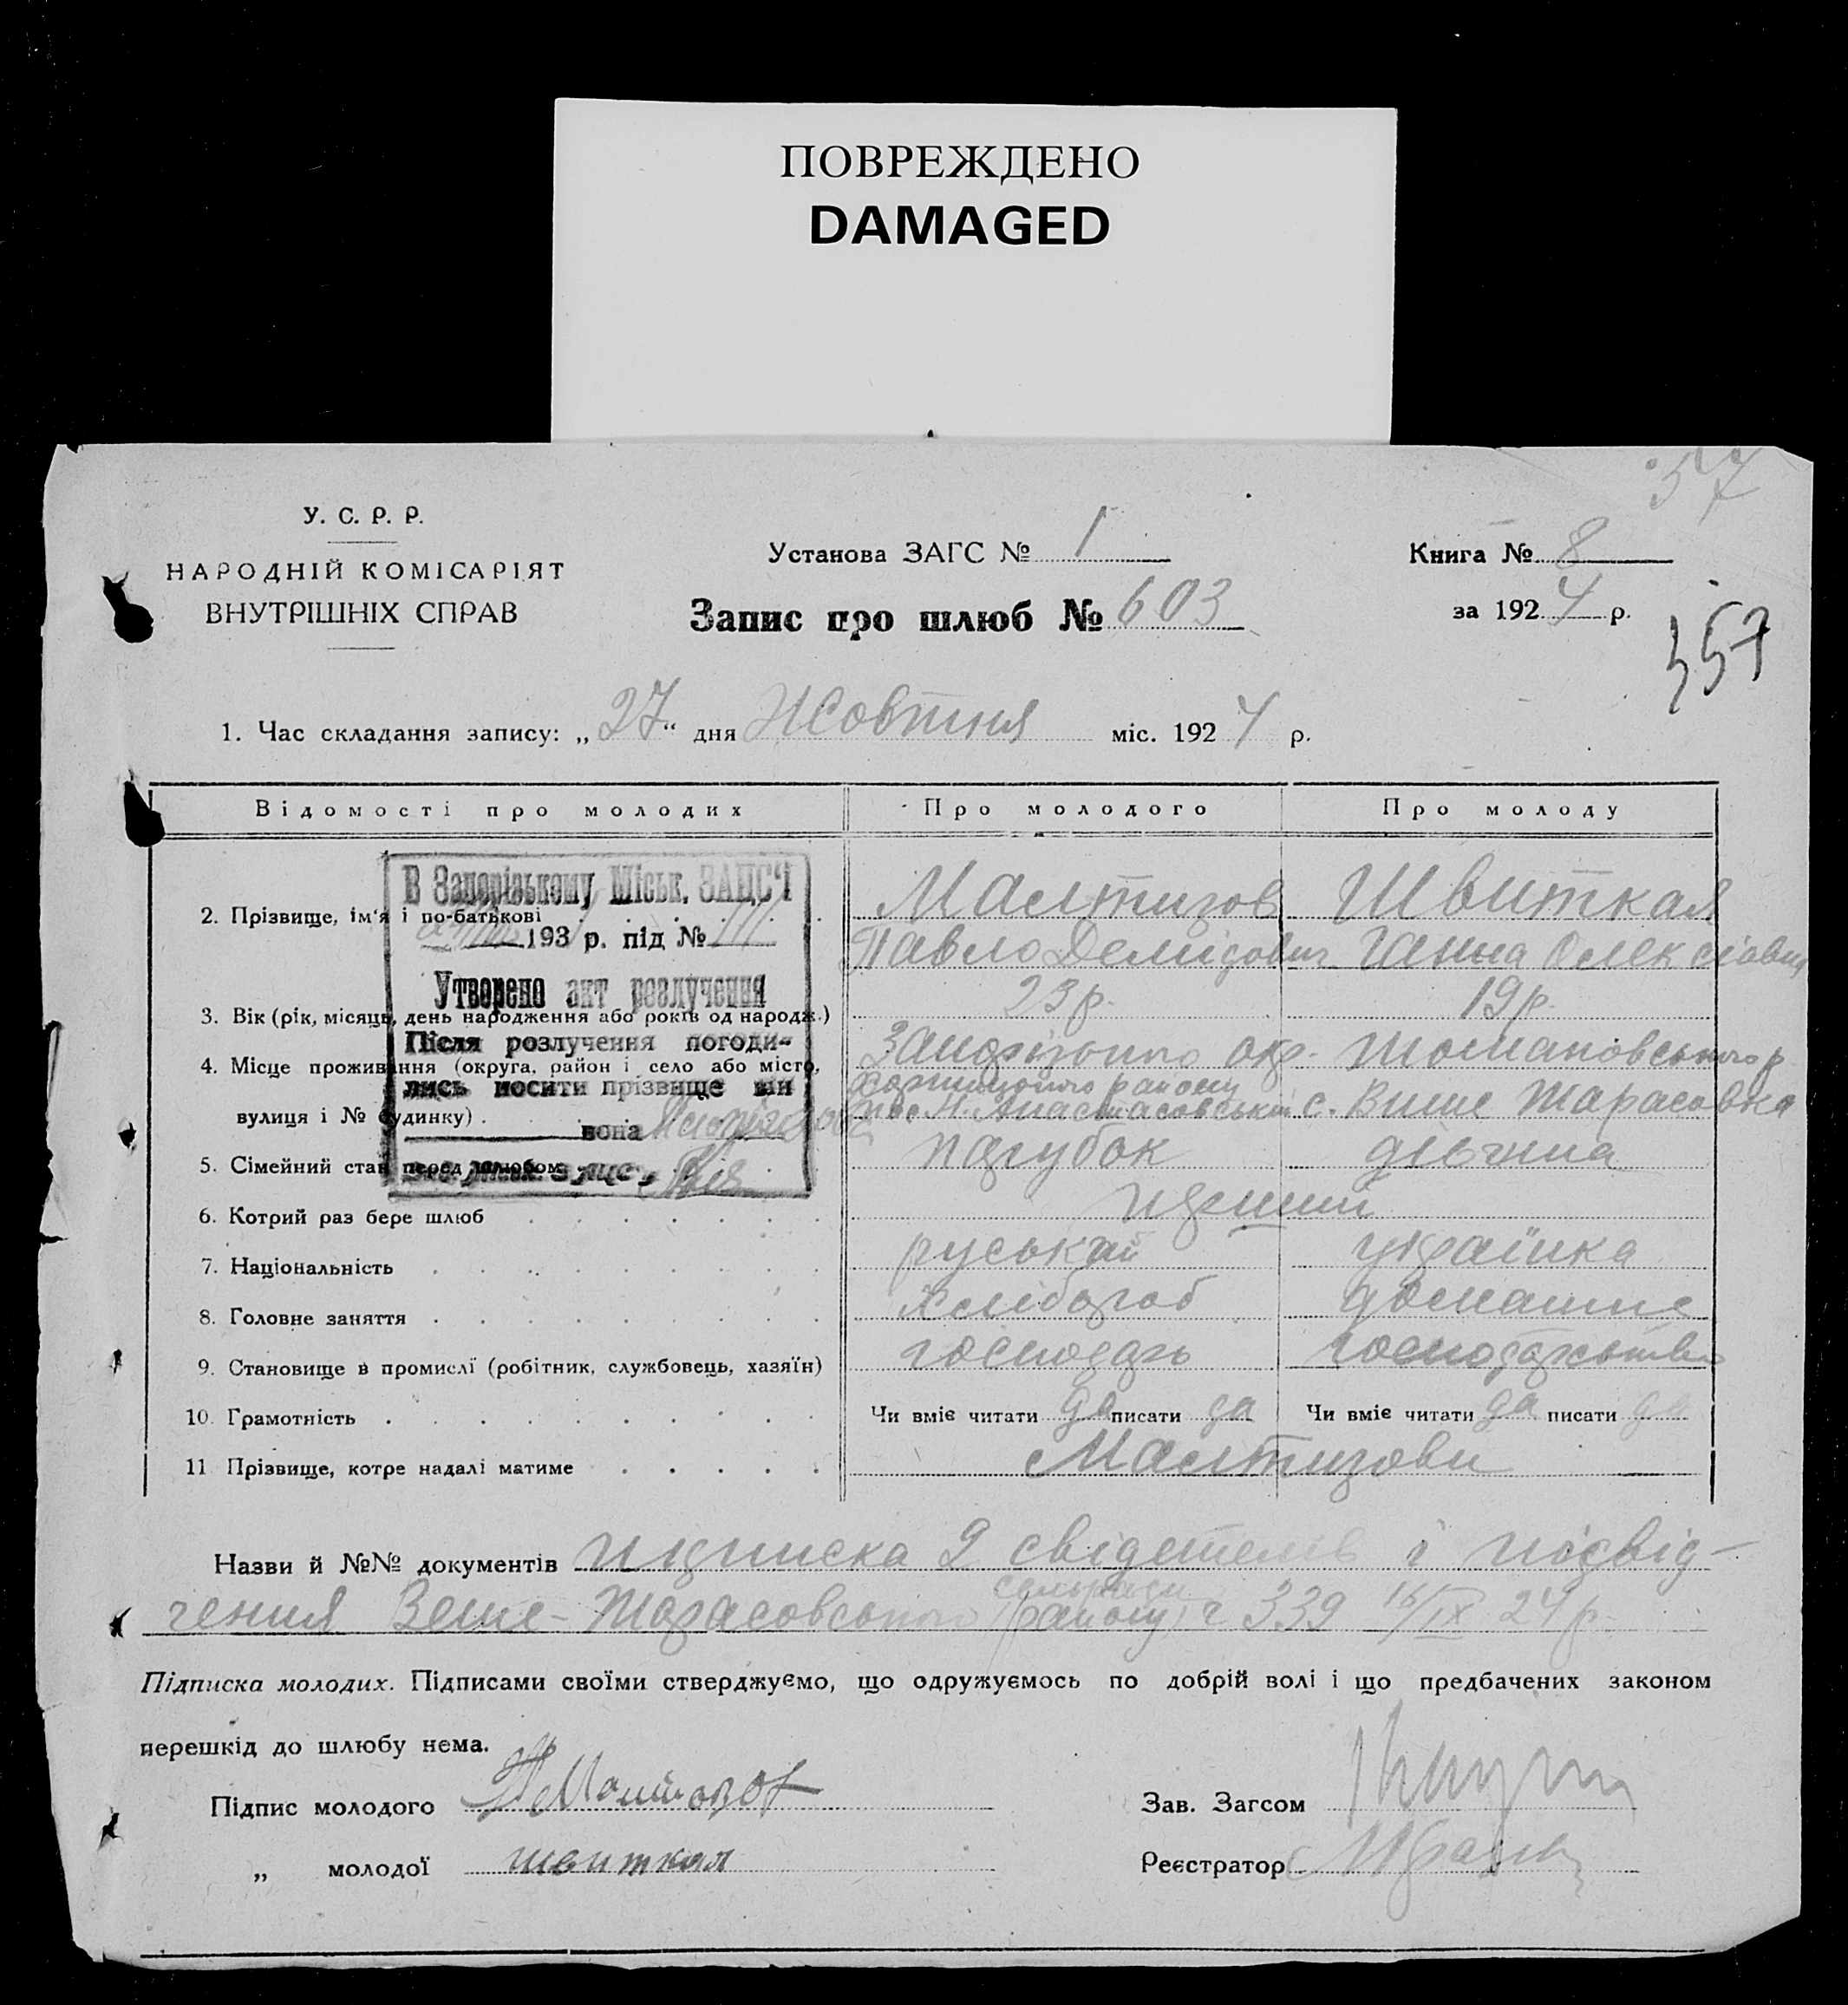 ПОВРЕЖДЕНО
DAMAGED
57
У. С. Р. Р.
НАРОДНІЙ КОМІСАРІЯТ
ВНУТРІШНІХ СПРАВ
Установа ЗАГС № 1
Книга № 8
Запис про шлюб № 603
за 1924 р.
357
1. Час складання запису: „27“ дня Жовтня міс. 1924 р.
Відомості про молодих Про молодого Про молоду
2. Прізвище, ім'я і по-батькові
Швиткая
Павло Демидович Ганна
3. Вік (рік, місяць, день народження або років од народж.) 23р. 19р.
4. Місце проживання (округа, район і село або місто,
вулиця і № будинку)
окр.
району
с. Више Тарасовка
5. Сімейний стан перед шлюбом парубок дівчина
6. Котрий раз бере шлюб перший
7. Національність руський українка
8. Головне заняття хлібороб домашнє
9. Становище в промислі (робітник, службовець, хазяїн) господарь господарство
10. Грамотність Чи вміє читати да писати да Чи вміє читати да писати да
11 Прізвище, котре надалі матиме
В Запорізькому Міськ. ЗАЦС'І
193 р. під №
Утворено акт розлучення
Після розлучення погоди-
лись носити прізвище він
вона
Назви й №№ документів підписка 2 свідетелів і посвід-
сельради
чення Веше-Тарасовського району ч 339 16/IX 24 р.
Підписка молодих. Підписами своїми стверджуємо, що одружуємось по добрій волі і що предбачених законом
перешкід до шлюбу нема.
Підпис молодого
Зав. Загсом
„ молодої швиткая
Реєстратор